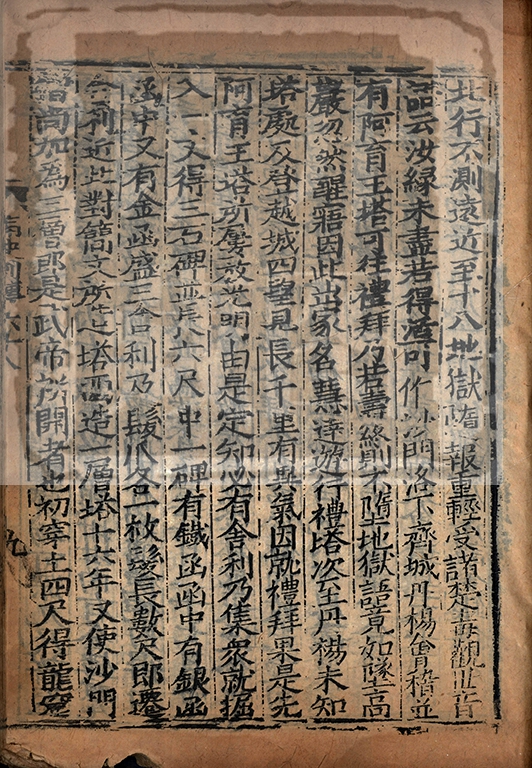 北行不測遠近至十八地獄隋報重輕受諸楚毒觀世音
語云汝緣未盡若得活可作沙門洛下齊城丹楊會稽並
有阿育王塔可往禮拜乃若壽終則不墮地獄語竟如墜高
巖忽然醒寤因此出家名慧達遊行禮塔次至丹楊未知
塔處及登越城四望見長千里有異氣因就禮拜果是先
阿育王塔所屢放光明由是定知必有舍利乃集衆就掘
入一丈得三石碑並長八六尺中一碑有鐵函函中有銀函
函中又有金函盛三舍利乃髮爪各一枚髮長數尺卽遷
舍利近北對簡文所造塔西造一層塔十六年又使沙門
僧尚加為三層卽是武帝所開者也初穿土四尺得龍窟
南史列傳六十八
九